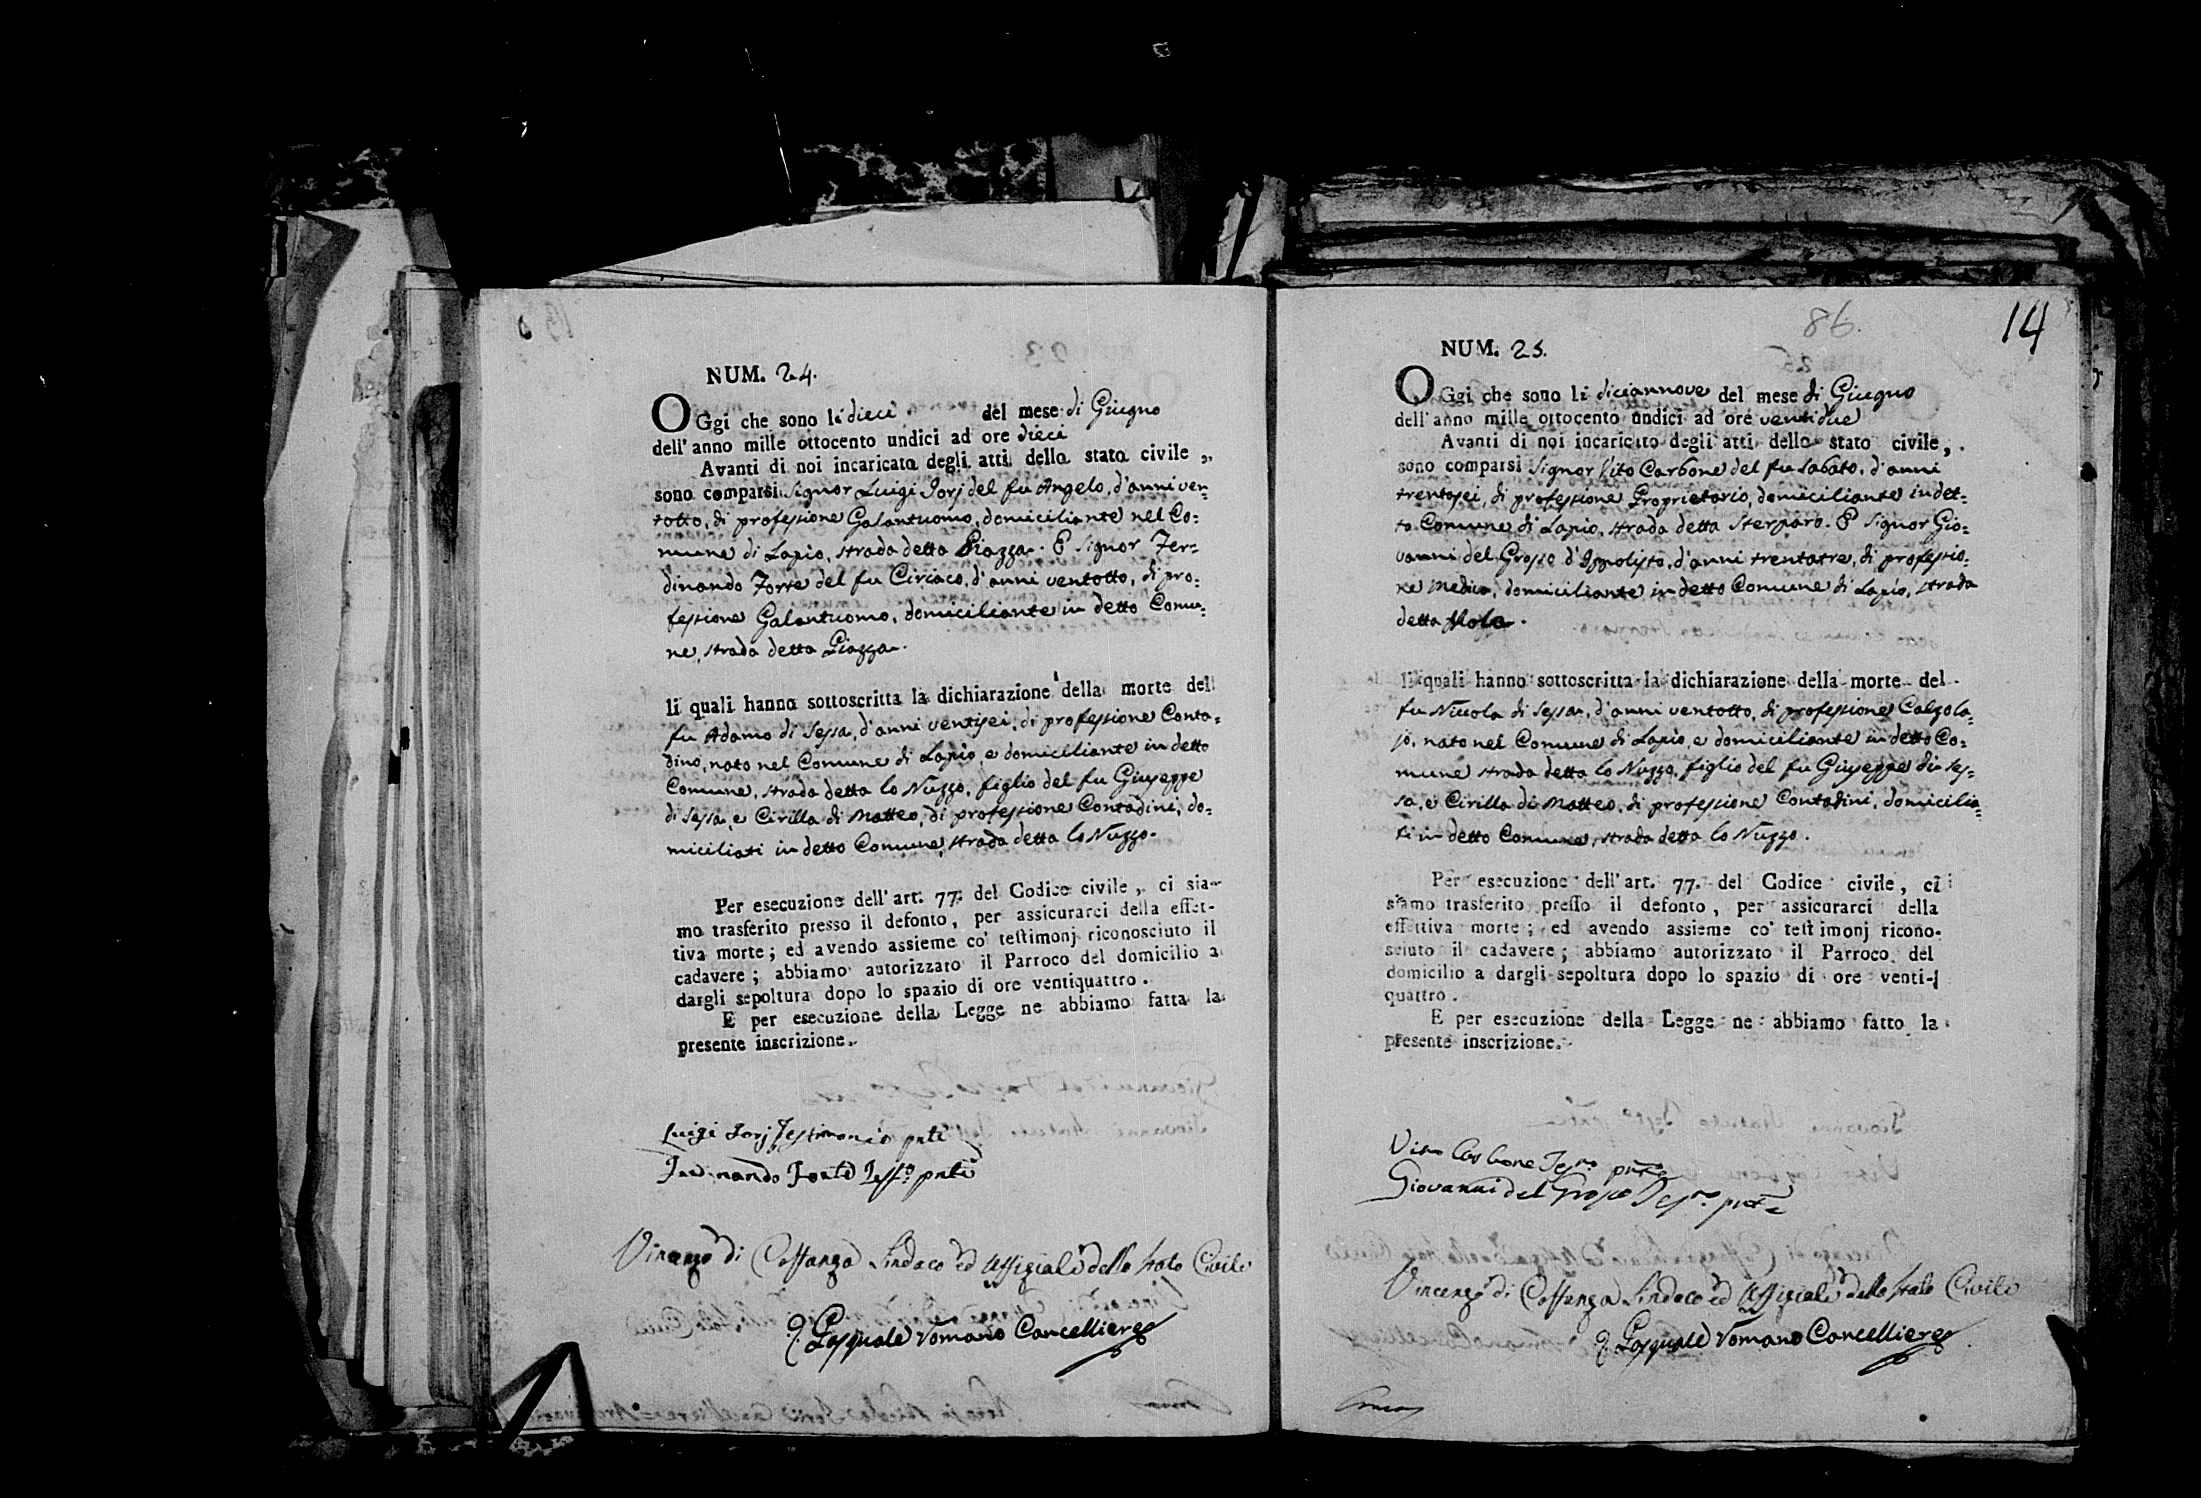 NUM. 24.
OGgi che sono li dieci del mese di Giugno
dell' anno mille ottocento undici ad ore dieci
Avanti di noi incaricato degli atti dello stato civile,
sono comparsi Signor Luigi Jorj del fu Angelo, d'anni ven=
totto, di professione Galantuomo, domiciliante nel Co=
mune di Lapio, strada detta Piazza. E Signor Fer=
dinando Forte del fu Ciriaco, d'anni ventotto, di pro=
fessione Galantuomo, domiciliante in detto Comu=
ne, strada detta Piazza.
li quali hanno sottoscritta la dichiarazione della morte del
fu Adamo di Sessa, d'anni ventisei, di professione Conta=
dino, nato nel Comune di Lapio, e domiciliante in detto
Comune, strada detta lo Nuzzo, figlio del fu Giuseppe
di Sessa, e Cirilla di Matteo, di professione Contadini, do=
miciliati in detto Comune, strada detta lo Nuzzo.
Per esecuzione dell' art. 77. del Codice civile, ci sia-
mo trasferito presso il defonto, per assicurarci della effet-
tiva morte; ed avendo assieme co' testimonj riconosciuto il
cadavere; abbiamo autorizzato il Parroco del domicilio a
dargli sepoltura dopo lo spazio di ore ventiquattro.
E per esecuzione della Legge ne abbiamo fatta la
presente inscrizione.
Luigi Jorj Testimonio pnte
Ferdinando Forte Testo. pnte
Vincenzo di Costanza Sindaco ed Uffiziale dello Stato Civile
Pasquale Romano Cancelliere
86.
14
NUM. 25.
OGgi che sono li diciannove del mese di Giugno
dell' anno mille ottocento undici ad ore ventidue
Avanti di noi incaricato degli atti dello stato civile,
sono comparsi Signor Vito Carbone del fu Sabato, d'anni
trentasei, di professione Proprietario, domiciliante in det=
to Comune di Lapio, strada detta Sterparo. E Signor Gio=
vanni del Grosso d'Ippolisto, d'anni trentatre, di professio=
ne Medico, domiciliante in detto Comune di Lapio, strada
detta Mola.
li quali hanno sottoscritta la dichiarazione della morte del
fu Nicola di Sessa, d'anni ventotto, di professione Calzola=
jo, nato nel Comune di Lapio, e domiciliante in detto Co=
mune strada detta lo Nuzzo, figlio del fu Giuseppe di Ses=
sa, e Cirilla di Matteo, di professione Contadini, domicilia=
ti in detto Comune, strada detta lo Nuzzo.
Per esecuzione dell' art. 77. del Codice civile, ci
siamo trasferito presso il defonto, per assicurarci della
effettiva morte; ed avendo assieme co' testimonj ricono-
sciuto il cadavere; abbiamo autorizzato il Parroco del
domicilio a dargli sepoltura dopo lo spazio di ore venti-
quattro.
E per esecuzione della Legge ne abbiamo fatto la
presente inscrizione.
Vito Carbone Testo. pnte
Giovanni del Grosso Testo. pnte
Vincenzo di Costanza Sindaco ed Uffiziale dello Stato Civile
Pasquale Romano Cancelliere